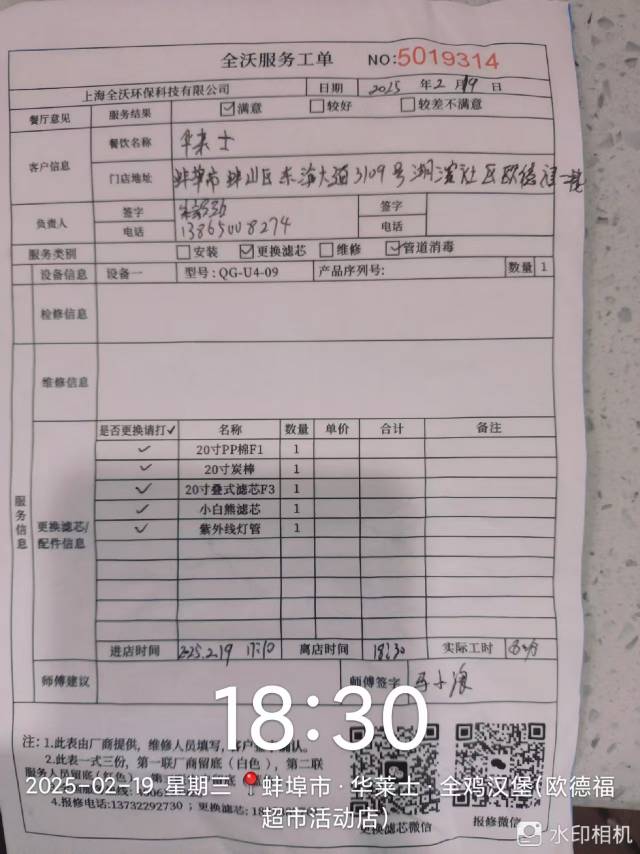 全沃服务工单 NO:5019314
上海全沃环保科技有限公司 日期 2025 年 2 月 19 日
餐厅意见 服务结果 ☑满意 ☐较好 ☐较差不满意
客户信息 餐饮名称 华莱士
门店地址 蚌埠市蚌山区东海大道3109号湖滨社区欧德福一楼
负责人 签字 签字
电话 13865008274 电话
服务类别 ☐安装 ☑更换滤芯 ☐维修 ☑管道消毒
设备信息 设备一 型号:QG-U4-09 产品序列号: 数量 1
检修信息
维修信息
服务信息
更换滤芯/配件信息
是否更换请打✓ 名称 数量 单价 合计 备注
✓ 20寸PP棉F1 1
✓ 20寸炭棒 1
✓ 20寸叠式滤芯F3 1
✓ 小白熊滤芯 1
✓ 紫外线灯管 1
进店时间 2025.2.19 17:10 离店时间 18:30 实际工时
师傅建议 师傅签字
18:30
注:1.此表由厂商提供,维修人员填写,客户 确认。
2.此表一式三份,第一联厂商留底(白色),第二联
服务人员留底(红色)
2025-02-19 星期三 蚌埠市·华莱士·全鸡汉堡(欧德福
超市活动店)
4.报修电话:13732292730;更换滤芯:
更换滤芯微信 报修微信
水印相机